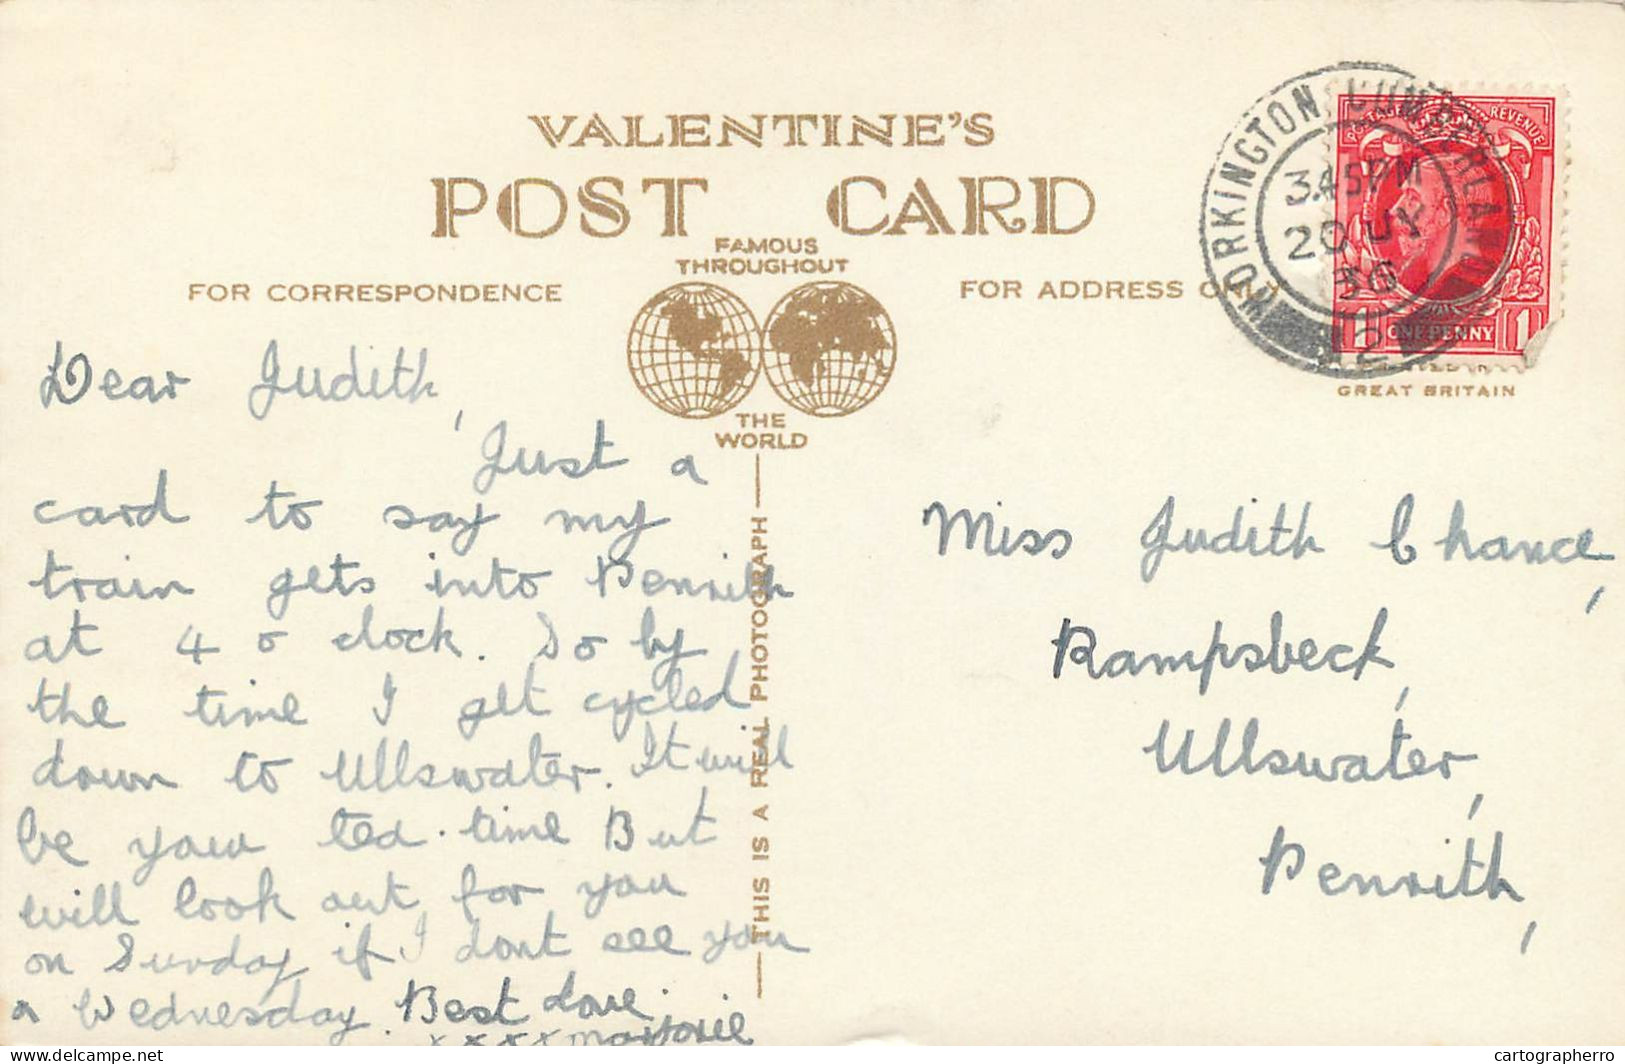 VALENTINE'S
POST CARD
FAMOUS
THROUGHOUT
THE
WORLD
FOR CORRESPONDENCE
FOR ADDRESS ONLY
WORKINGTON CUMBERLAND
3.45PM
20 JY
36
12
POSTAGE REVENUE
1 ONE PENNY 1
GREAT BRITAIN
THIS IS A REAL PHOTOGRAPH
Dear Judith,
Just a
card to say my
train gets into Penrith
at 4 o clock. So by
the time I get cycled
down to Ullswater. It will
be your tea-time But
will look out for you
on Sunday if I dont see you
a Wednesday. Best love.
xxxx Marjorie
Miss Judith Chance,
Rampsbeck,
Ullswater,
Penrith,
cartographerro